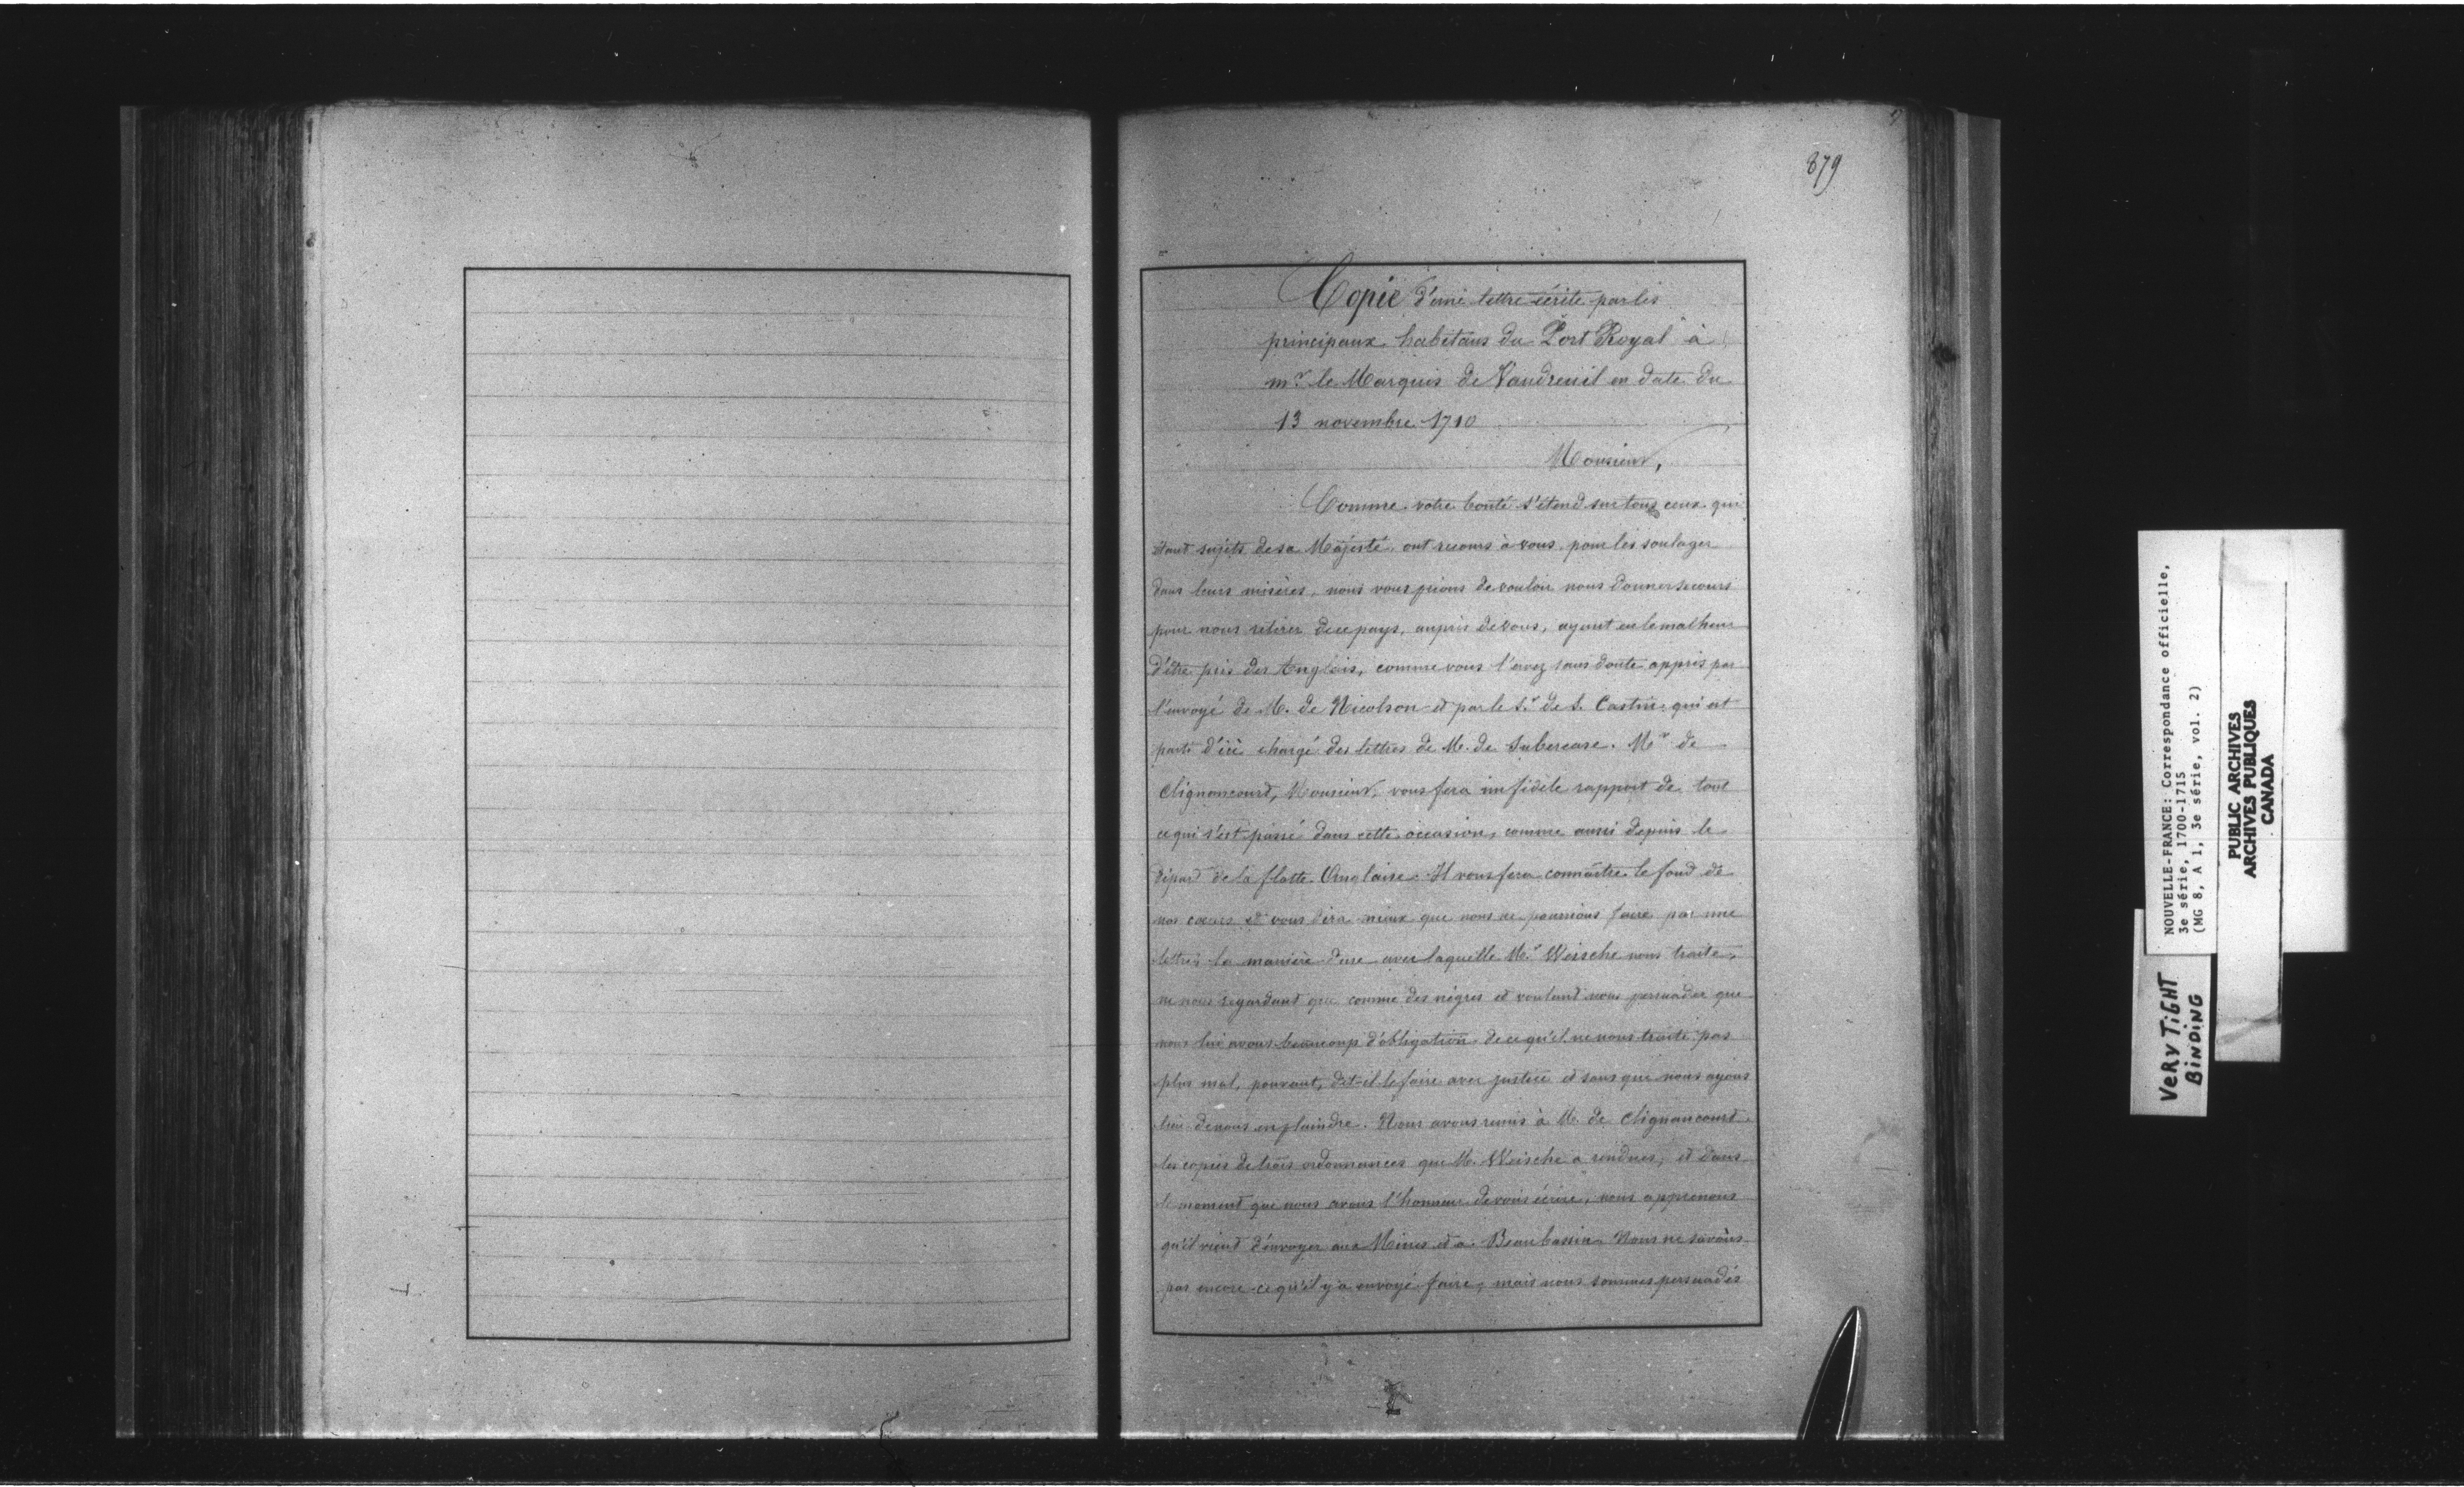 879
Copie d'une lettre écrite par les
principaux habitans du "Port Royal" à
mr. le Marquis de Vaudreuil en date du
13 novembre 1710
Monsieur,
Comme votre bonté s'étend sur tous ceux qui
étant sujets de sa Majesté, ont recours à vous, pour les soulager
dans leurs misères, nous vous prions de vouloir nous donner secours
pour nous retirer de ce pays, auprès de vous, ayant eu le malheur
d'être pris des Anglois, comme vous l'avez sans doute appris par
l'envoyé de M. de Nicolson et par le Sr. de S. Castin qui est
parti d'ici chargé des lettres de M. de Subercase. Mr de
Clignoncourt, Monsieur, vous fera un fidèle rapport de tout
ce qui s'est passé dans cette occasion, comme aussi depuis le
départ de la flotte Anglaise. Il vous fera connaître le fond de
nos cœurs et vous dira mieux que nous ne pourrions faire par une
lettre la manière dure avec laquelle Mr. Weische nous traite,
ne nous regardant que comme des nègres et voulant nous persuader que
nous lui avons beaucoup d'obligation de ce qu'il ne nous traite pas
plus mal, pouvant, dit-il le faire avec justice et sans que nous ayons
lieu de nous en plaindre. Nous avons remis à M. de Clignancourt
les copies de trois ordonnances que M. Weische a rendues, et dans
le moment que nous avons l'honneur de vous écrire, nous apprenons
qu'il vient d'envoyer aux Mines et à Beaubassin. Nous ne savons
pas encore ce qu'il y a envoyé faire, mais nous sommes persuadés
NOUVELLE-FRANCE: Correspondance officielle,
3e série, 1700-1715
(MG 8, A 1, 3e série, vol. 2)
PUBLIC ARCHIVES
ARCHIVES PUBLIQUES
CANADA
VERY TiGHT
BiNDiNG